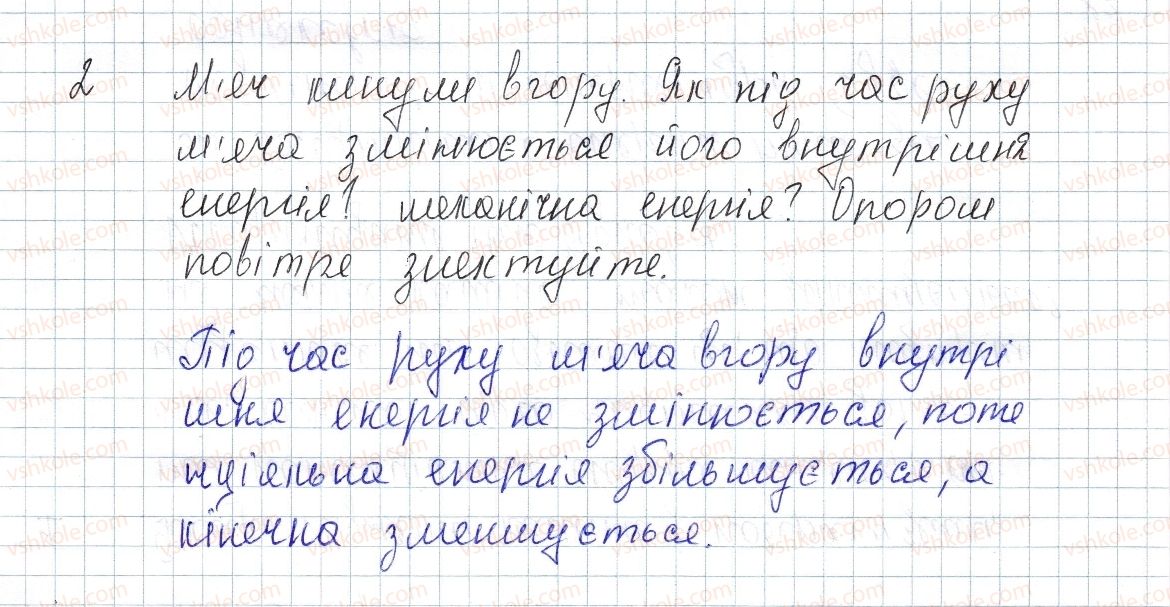 2 М'яч кинули вгору. Як під час руху
м'яча змінюється його внутрішня
енергія? механічна енергія? Опором
повітря знехтуйте.
Під час руху м'яча вгору внутрі
шня енергія не змінюється, поте
нціяльна енергія збільшується, а
кінечна зменшується.